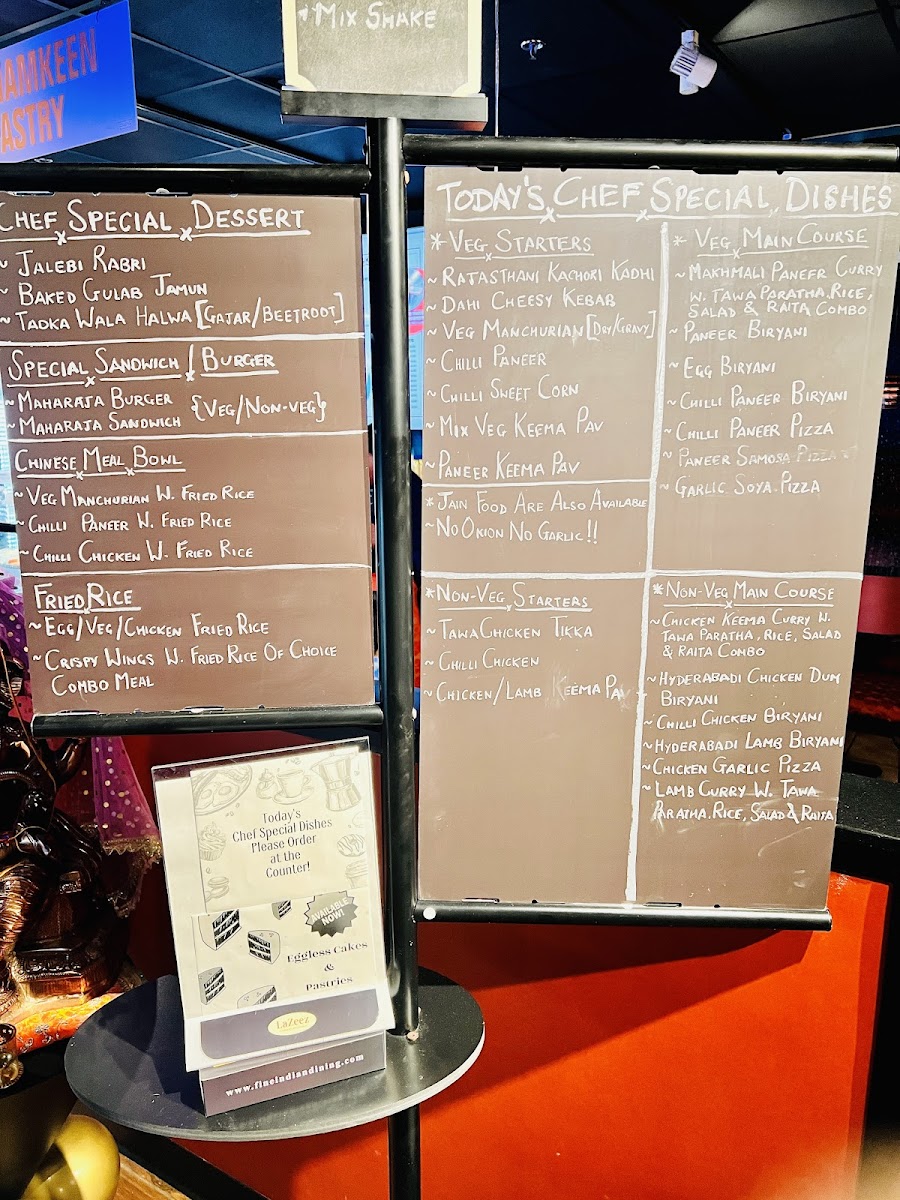 ~ Mix Shake
AMKEEN
ASTRY
Chef Special Dessert
~ Jalebi Rabri
~ Baked Gulab Jamun
~ Tadka Wala Halwa [Gajar/Beetroot]
Special Sandwich / Burger
~ Maharaja Burger {Veg/Non-veg}
~ Maharaja Sandwich
Chinese Meal Bowl
~ Veg Manchurian W. Fried Rice
~ Chilli Paneer W. Fried Rice
~ Chilli Chicken W. Fried Rice
Fried Rice
~ Egg/Veg/Chicken Fried Rice
~ Crispy Wings W. Fried Rice Of Choice
Combo Meal
Today's Chef Special Dishes
* Veg Starters
~ Rajasthani Kachori Kadhi
~ Dahi Cheesy Kebab
~ Veg Manchurian [Dry/Gravy]
~ Chilli Paneer
~ Chilli Sweet Corn
~ Mix Veg Keema Pav
~ Paneer Keema Pav
* Jain Food Are Also Available
~ No Onion No Garlic!!
* Veg Main Course
~ Makhmali Paneer Curry
W. Tawa Paratha, Rice,
Salad & Raita Combo
~ Paneer Biryani
~ Egg Biryani
~ Chilli Paneer Biryani
~ Chilli Paneer Pizza
~ Paneer Samosa Pizza
~ Garlic Soya Pizza
* Non-Veg Starters
~ Tawa Chicken Tikka
~ Chilli Chicken
~ Chicken/Lamb Keema Pav
* Non-Veg Main Course
~ Chicken Keema Curry W.
Tawa Paratha, Rice, Salad
& Raita Combo
~ Hyderabadi Chicken Dum
Biryani
~ Chilli Chicken Biryani
~ Hyderabadi Lamb Biryani
~ Chicken Garlic Pizza
~ Lamb Curry W. Tawa
Paratha, Rice, Salad & Raita
Today's
Chef Special Dishes
Please Order
at the
Counter!
AVAILABLE
NOW!
Eggless Cakes
&
Pastries
LaZeez
www.fineindiandining.com